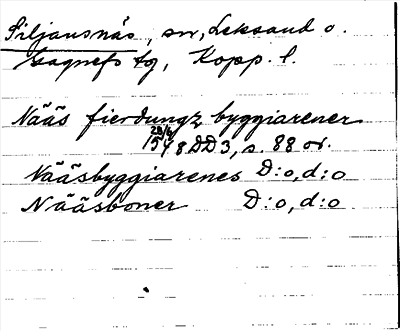 Siljansnäs, sn, Leksand o.
Gagnefs tg, Kopp. l.
Nääs fierdungz byggiarener
28/6
1548 DD3, s. 88 or.
Nääsbyggiarenes D:o, d:o
Nääsboner D:o, d:o